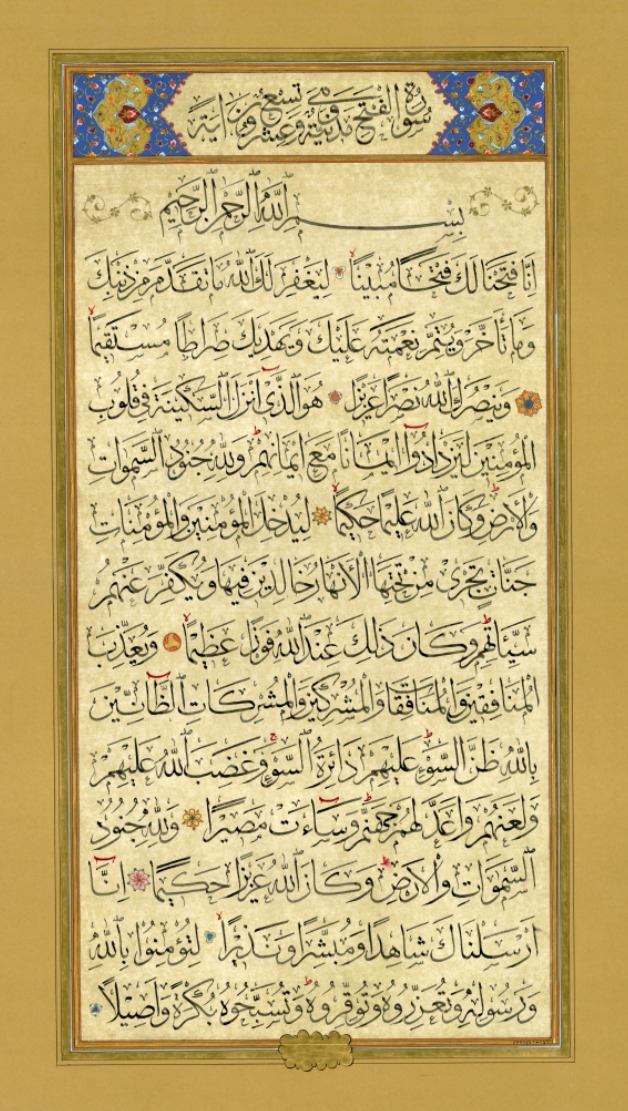 سُورَةُ الْفَتْحِ مَدَنِيَّةٌ وَهِيَ تِسْعٌ وَعِشْرُونَ اٰيَةً
بِسْمِ اللّٰهِ الرَّحْمٰنِ الرَّحِيمِ
اِنَّا فَتَحْنَا لَكَ فَتْحًا مُبِينًا لِيَغْفِرَ لَكَ اللّٰهُ مَا تَقَدَّمَ مِنْ ذَنْبِكَ
وَمَا تَأَخَّرَ وَيُتِمَّ نِعْمَتَهُ عَلَيْكَ وَيَهْدِيَكَ صِرَاطًا مُسْتَقِيمًا
وَيَنْصُرَكَ اللّٰهُ نَصْرًا عَزِيزًا هُوَ الَّذِى اَنْزَلَ السَّكِينَةَ فِى قُلُوبِ
الْمُؤْمِنِينَ لِيَزْدَادُوا اِيمَانًا مَعَ اِيمَانِهِمْ وَلِلّٰهِ جُنُودُ السَّمٰوَاتِ
وَالْاَرْضِ وَكَانَ اللّٰهُ عَلِيمًا حَكِيمًا لِيُدْخِلَ الْمُؤْمِنِينَ وَالْمُؤْمِنَاتِ
جَنَّاتٍ تَجْرِى مِنْ تَحْتِهَا الْاَنْهَارُ خَالِدِينَ فِيهَا وَيُكَفِّرَ عَنْهُمْ
سَيِّئَاتِهِمْ وَكَانَ ذٰلِكَ عِنْدَ اللّٰهِ فَوْزًا عَظِيمًا وَيُعَذِّبَ
الْمُنَافِقِينَ وَالْمُنَافِقَاتِ وَالْمُشْرِكِينَ وَالْمُشْرِكَاتِ الظَّانِّينَ
بِاللّٰهِ ظَنَّ السَّوْءِ عَلَيْهِمْ دَائِرَةُ السَّوْءِ وَغَضِبَ اللّٰهُ عَلَيْهِمْ
وَلَعَنَهُمْ وَاَعَدَّ لَهُمْ جَهَنَّمَ وَسَاءَتْ مَصِيرًا وَلِلّٰهِ جُنُودُ
السَّمٰوَاتِ وَالْاَرْضِ وَكَانَ اللّٰهُ عَزِيزًا حَكِيمًا اِنَّا
اَرْسَلْنَاكَ شَاهِدًا وَمُبَشِّرًا وَنَذِيرًا لِتُؤْمِنُوا بِاللّٰهِ
وَرَسُولِهِ وَتُعَزِّرُوهُ وَتُوَقِّرُوهُ وَتُسَبِّحُوهُ بُكْرَةً وَاَصِيلًا